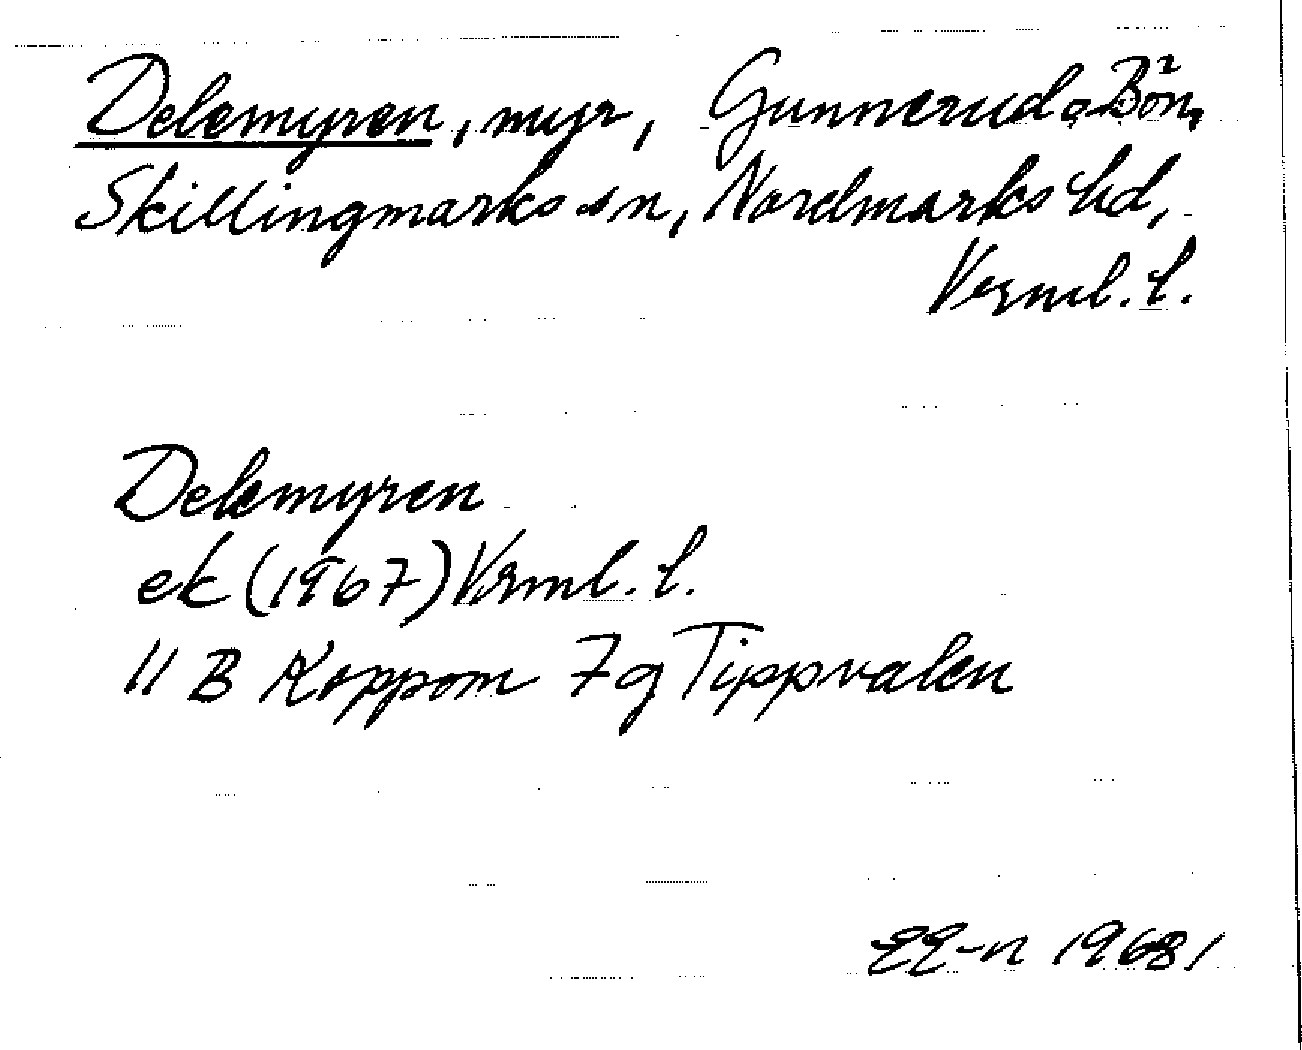 Delemyren, myr, Gunnerud o. Bön²,
Skillingmarks sn, Nordmarks hd,
Verml. l.
Delemyren
ek (1967) Vrml. l.
11 B Koppom 7g Tippvalen
EE-n 1968